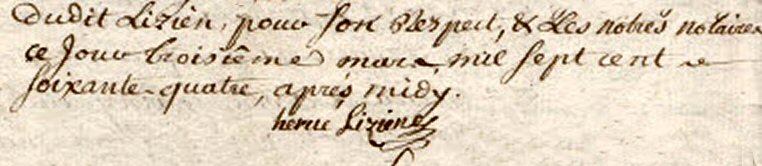 Dudit Lizien, pour son Respect, & Les notres notaires
ce Jour troisième mars, mil sept cent
soixante-quatre, après midy.
herué Lizien